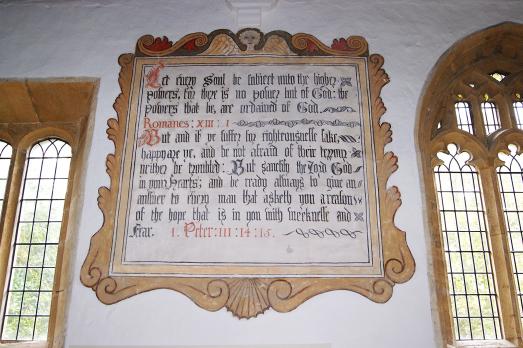 Let euery Soul be subiect unto the higher
Powers, for there is no power but of God: the
Powers that be, are ordained of God.
Romanes: XIII: 1
But and if ye suffer for righteousnesse sake,
happy are ye, and be not afraid of their terrour
neither be troubled: But sanctify the Lord God
in your Hearts; and be ready always to giue an
answer to euery man that asketh you a reason
of the hope that is in you with meeknesse and
Fear. 1. Peter: III: 14: 15.